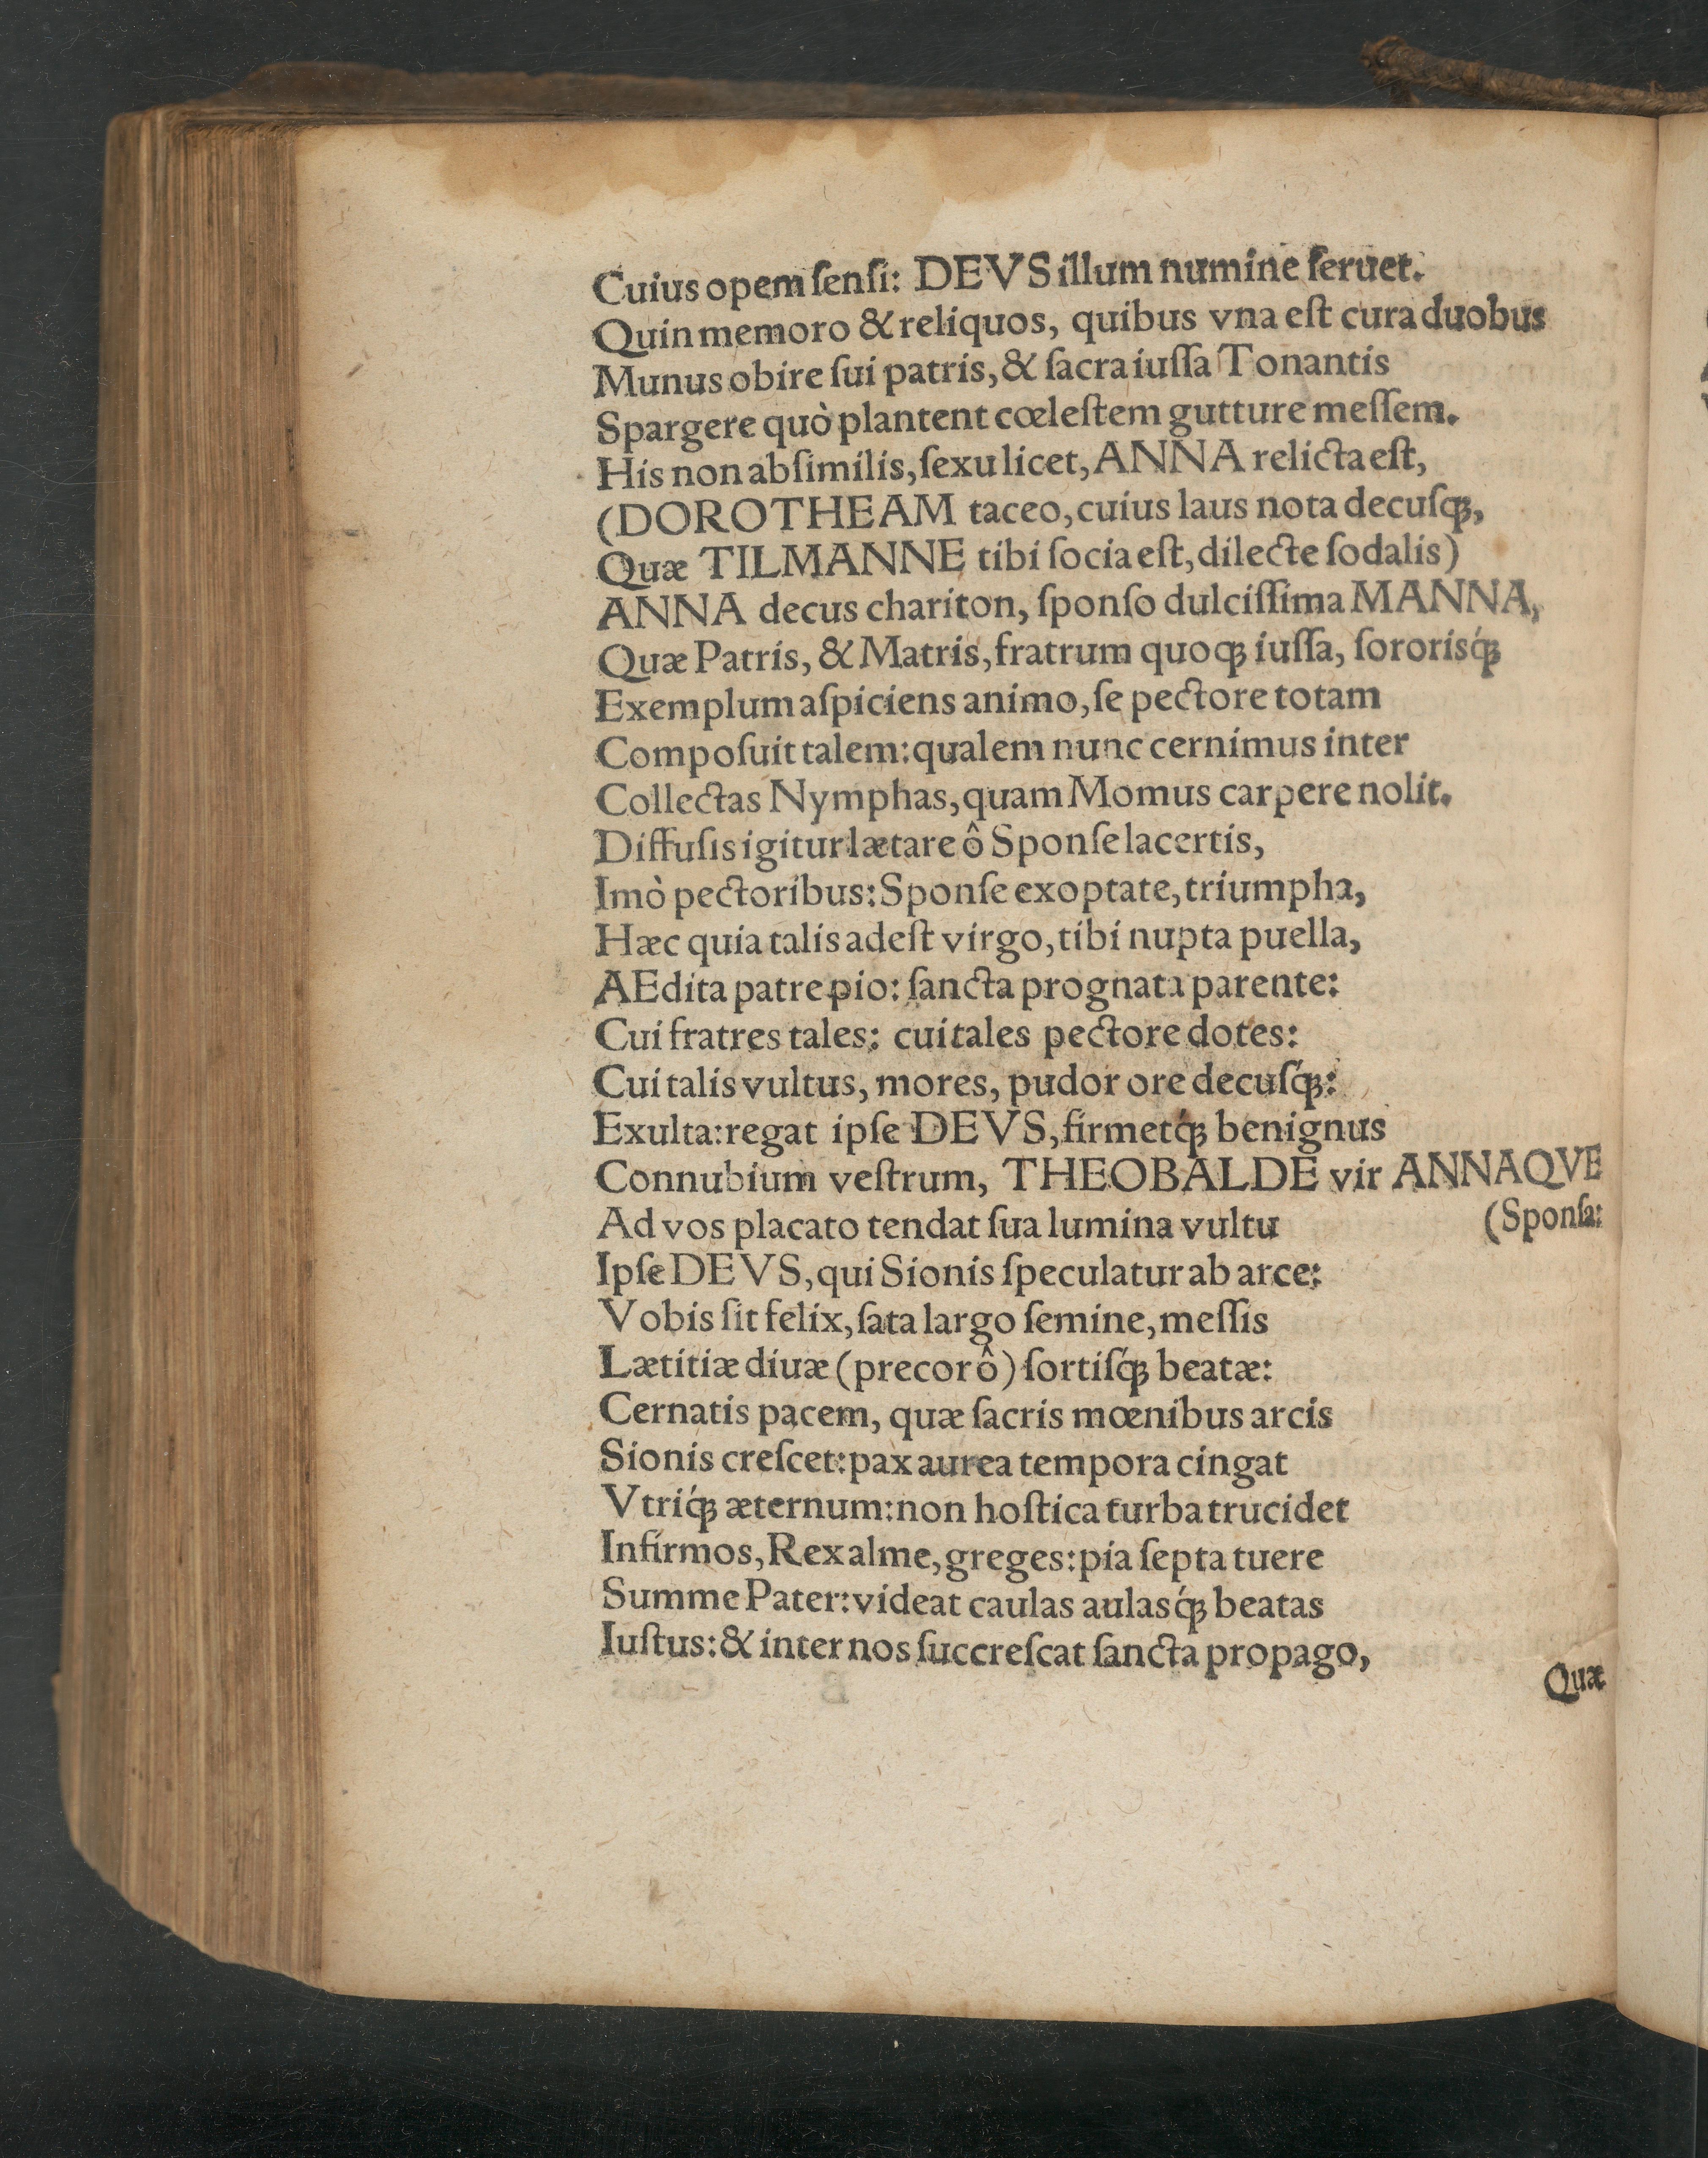 Cuius opem ſenſi: DEVS illum numine ſeruet.
Quin memoro & reliquos, quibus vna eſt cura duobus
Munus obire ſui patris, & ſacra iuſſa Tonantis
Spargere quò plantent cœleſtem gutture meſſem.
His non abſimilis, ſexu licet, ANNA relicta eſt,
(DOROTHEAM taceo, cuius laus nota decuſq́;,
Quæ TILMANNE tibi ſocia eſt, dilecte ſodalis)
ANNA decus chariton, ſponſo dulciſſima MANNA,
Quæ Patris, & Matris, fratrum quoq; iuſſa, ſororisq́;
Exemplum aſpiciens animo, ſe pectore totam
Compoſuit talem: qualem nunc cernimus inter
Collectas Nymphas, quam Momus carpere nolit.
Diffuſis igitur lætare ô Sponſe lacertis,
Imò pectoribus: Sponſe exoptate, triumpha,
Hæc quia talis adeſt virgo, tibi nupta puella,
AEdita patre pio: ſancta prognata parente:
Cui fratres tales: cui tales pectore dotes:
Cui talis vultus, mores, pudor ore decuſq́;:
Exulta: regat ipſe DEVS, firmetq́; benignus
Connubium veſtrum, THEOBALDE vir ANNAQVE
(Sponſa:
Ad vos placato tendat ſua lumina vultu
Ipſe DEVS, qui Sionis ſpeculatur ab arce:
Vobis ſit felix, ſata largo ſemine, meſſis
Lætitiæ diuæ (precor ô) ſortiſq́; beatæ:
Cernatis pacem, quæ ſacris mœnibus arcis
Sionis creſcet: pax aurea tempora cingat
Vtriq́; æternum: non hoſtica turba trucidet
Infirmos, Rex alme, greges: pia ſepta tuere
Summe Pater: videat caulas aulasq́; beatas
Iuſtus: & inter nos ſuccreſcat ſancta propago,
Quæ